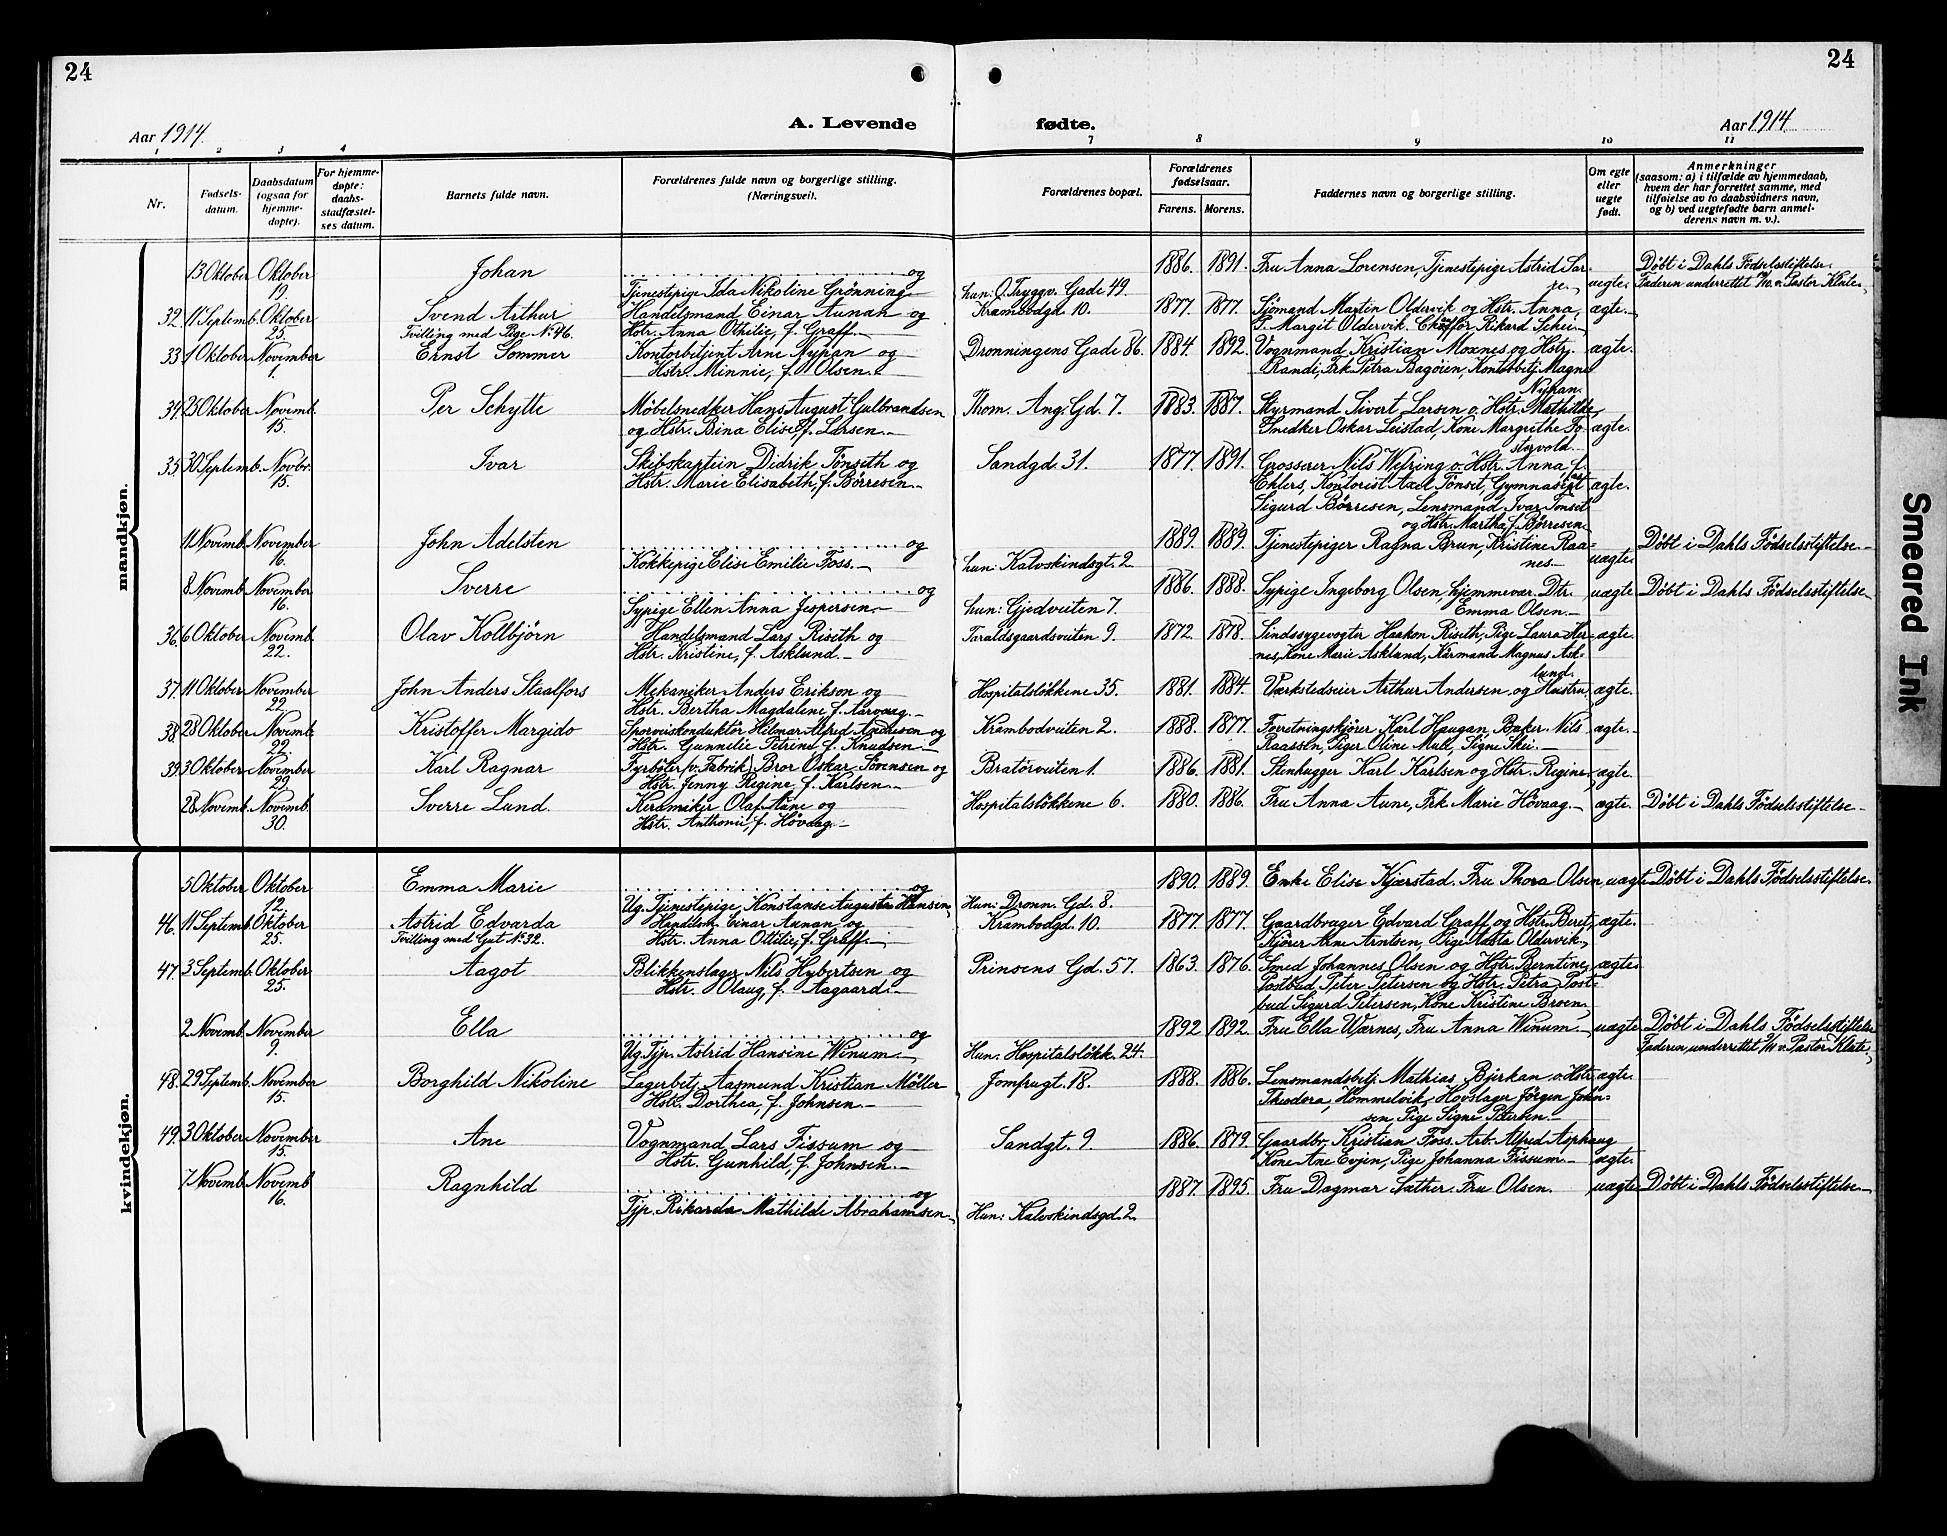 24
24
Aar 1914.
A. Levende
fødte.
Aar 1914
1 2 3 4 7 8 9 10 11
Nr.
Fødsels-
datum.
Daabsdatum
(ogsaa for
hjemme-
døpte).
For hjemme-
døpte:
daabs-
stadfæstel-
ses datum.
Barnets fulde navn.
Forældrenes fulde navn og borgerlige stilling.
(Næringsvei).
Forældrenes bopæl.
Forældrenes
fødselsaar.
Farens. Morens.
Faddernes navn og borgerlige stilling.
Om egte
eller
uegte
født.
Anmerkninger
(saasom: a) i tilfælde av hjemmedaab,
hvem der har forrettet samme, med
tilføielse av to daabsvidners navn,
og b) ved uegtefødte barn anmel-
derens navn m. v.).
mandkjøn.
13 Oktober Oktober Johan og 1886. 1891. Fru Anna Lorensen, Tjenestepige Astrid Døbt i Dahls Fødselsstiftelse.
19. Tjenestepige Ida Nikoline Grønning hun: O. Tryggv. Gade 49. uegte Faderen underrettet Pastor
32. 11 Septemb. Oktober Svend Arthur Handelsmand Einar Aunan og Krambodgd 10. 1877. 1877. Sjømand Martin Oldervik og Hstr. Anna, ægte.
25. Tvilling med Pige No. 46. Hstr. Anna Othilie, f. Graff. G. Margit Oldervik. Chauffør Rikard Schei
33. 1 Oktober November Ernst Sommer Kontorbetjent Arne Nypan og Dronningens Gade 86. 1884. 1892. Vognmand Kristian Moxnes og Hstr. ægte.
1. Hstr. Minnie, f. Olsen. Randi, Frk Petra Bagøien, Kontorbetj. Magne
Nypan.
34. 25 Oktober Novemb. Per Schytte Møbelsnedker Hans August Gulbrandsen Thom. Ang. Gd. 7. 1883. 1887. Styrmand Sivert Larsen o. Hstr. Mathilde,
15. og Hstr. Bina Elise, f. Larsen. Snedker Oskar Leistad, Kone Margrethe To- ægte.
stervold.
35. 30 Septemb. Novbr. Ivar Skibskaptein Didrik Tønseth og Sandgd. 31. 1877. 1891. Grosserer Nils Wefring o. Hstr. Anna f.
15. Hstr. Marie Elisabeth, f. Børresen. Ehlers, Kontorist Axel Tønset, Gymnasiast ægte.
Sigurd Børresen, Lensmand Ivar Tønset
og Hstr. Martha, f. Børresen.
11 Novemb. November John Adelsten og 1889. 1889. Tjenestepiger Ragna Brun, Kristine Raa- Døbt i Dahls Fødselsstiftelse
16. Kokkepige Elise Emilie Foss. hun: Kalvskindsgt. 2 nes uægte
8 Novemb. November Sverre og 1886. 1888. Sypige Ingeborg Olsen, hjemmevær. Dtr. uægte Døbt i Dahls Fødselsstiftelse
16. Sypige Ellen Anna Jespersen. hun: Gjedveiten 7. Emma Olsen.
36. 6 Oktober Novemb. Olav Kollbjørn Handelsmand Lars Riseth og Taraldsgaardsveiten 9. 1872. 1878. Sindssygevogter Haakon Riseth, Pige Laura Her- ægte.
22. Hstr. Kristine, f. Asklund. nes, Kone Marie Asklund, Kårmand Magnus Ask-
lund.
37. 11 Oktober November John Anders Staalfors Mekaniker Anders Erikson og Hospitalsløkkene 35. 1881. 1884. Værkstedseier Arthur Andersen og Hustru, ægte.
22. Hstr. Bertha Magdalene f. Aarvaag.
38. 28 Oktober Novemb. Kristoffer Margido Sporveiskonduktør Hilmar Alfred Andresen og Krambodveiten 2. 1888. 1877. Forretningskjører Karl Haugan, Baker Nils ægte.
22. Hstr. Gunnelie Petrine f. Knudsen Raassen, Piger Oline Mull, Signe Skei.
39. 3 Oktober November Karl Ragnar Fyrbøter (v. Fabrik) Bror Oskar Sørensen og Bratørveiten 1. 1886. 1881. Stenhugger Karl Karlsen og Hstr. Regine, ægte.
29. Hstr. Jenny Regine f. Karlsen.
28 Novemb. Novemb. Sverre Lund. Keramiker Olaf Aune og Hospitalsløkkene 6. 1880. 1886. Fru Anna Aune, Frk Marie Høvaag. ægte. Døbt i Dahls Fødselsstiftelse
30. Hstr. Anthonie, f. Høvaag.
kvindekjøn.
5 Oktober Oktober Emma Marie og 1890. 1889. Enke Elise Kjærstad. Fru Thora Olsen uægte Døbt i Dahls Fødselsstiftelse.
12. Ug. Tjenestepige Konstanse Augusta Hansen Hun: Dronn. Gd. 8.
46. 11 Septemb. Oktober Astrid Edvarda Handelsm. Einar Aunan og Krambodgd. 10. 1877. 1877. Gaardbruger Edvard Graff og Hstr. Beret, ægte.
25. Tvilling med Gut No. 32. Hstr. Anna Ottilie, f. Graff. Kjører Arne Arntsen, Pige Aasta Oldervik.
47. 3 Septemb. Oktober Aagot Blikkenslager Nils Hybertsen og Prinsens Gd. 57. 1863. 1876. Smed Johannes Olsen og Hstr. Berntine, ægte
25. Hstr. Olaug, f. Aagaard. Postbud Peter Petersen og Hstr. Petra, Post-
bud Sigurd Petersen, Kone Kristine Broen.
2 Novemb. November Ella og 1892 1892. Fru Ella Wærnes, Fru Anna Winum. uægte Døbt i Dahls Fødselsstiftelse
9. Ug. Tjp. Astrid Hansine Winum. Hun: Hospitalsløkk. 24. Faderen underrettet Pastor
48. 29 Septemb. November Borghild Nikoline Lagerbetj. Aasmund Kristian Møller Jomfrugt. 18. 1888. 1886. Lensmandsbetj. Mathias Bjerkan o. Hstr ægte.
15. Hstr. Dorthea, f. Johnsen. Theodora, Hommelvik, Hovslager Jørgen John-
sen, Pige Signe
49. 3 Oktober November Ane Vognmand Lars Fissum og Sandgt. 9. 1886. 1879. Gaardbr. Kristian Foss. Arb. Alfred Asphaug
15. Hstr. Gunhild, f. Johnsen. Kone Ane Evjen, Pige Johanna Fissum. ægte.
7 Novemb. Novemb Ragnhild og 1887. 1895. Fru Dagmar Sæther. Fru Olsen. uægte Døbt i Dahls Fødselsstiftelse
16. Tjp. Rikarda Mathilde Abrahamsen Hun: Kalvskindsgd. 2
Smeared Ink